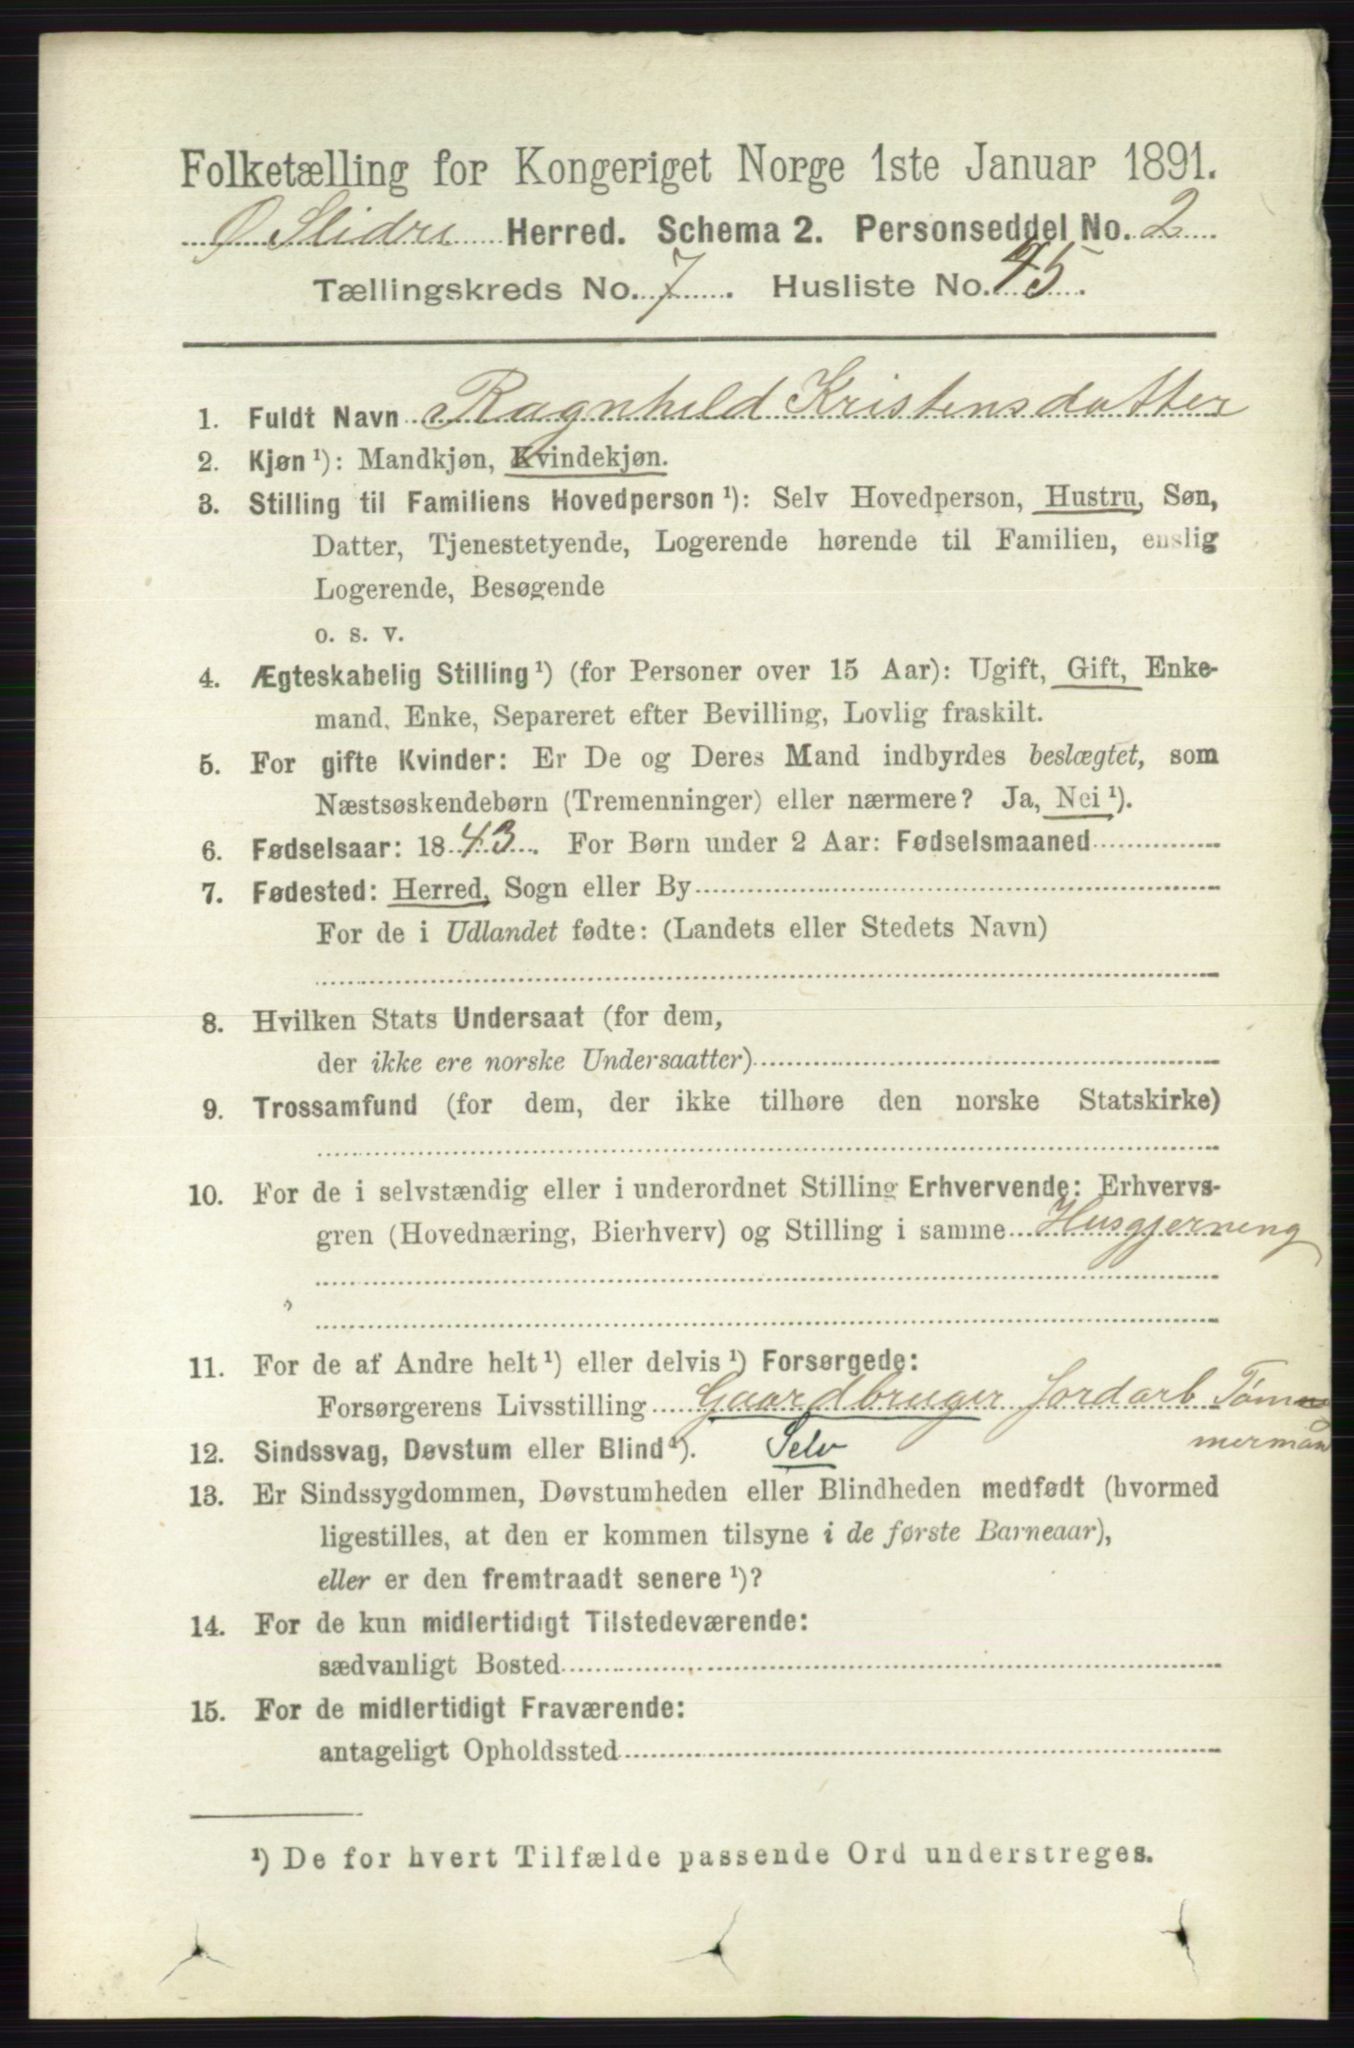 Folketælling for Kongeriget Norge 1ste Januar 1891.
Ø Slidre Herred. Schema 2. Personseddel No. 2
Tællingskreds No. 7. Husliste No. 45.
1. Fuldt Navn Ragnhild Kristensdatter
2. Kjøn ¹): Mandkjøn, Kvindekjøn.
3. Stilling til Familiens Hovedperson ¹): Selv Hovedperson, Hustru, Søn,
Datter, Tjenestetyende, Logerende hørende til Familien, enslig
Logerende, Besøgende
o. s. v.
4. Ægteskabelig Stilling ¹) (for Personer over 15 Aar): Ugift, Gift, Enke-
mand, Enke, Separeret efter Bevilling, Lovlig fraskilt.
5. For gifte Kvinder: Er De og Deres Mand indbyrdes beslægtet, som
Næstsøskendebørn (Tremenninger) eller nærmere? Ja, Nei ¹).
6. Fødselsaar: 1843. For Børn under 2 Aar: Fødselsmaaned
7. Fødested: Herred, Sogn eller By
For de i Udlandet fødte: (Landets eller Stedets Navn)
8. Hvilken Stats Undersaat (for dem,
der ikke ere norske Undersaatter)
9. Trossamfund (for dem, der ikke tilhøre den norske Statskirke)
10. For de i selvstændig eller i underordnet Stilling Erhvervende: Erhvervs-
gren (Hovednæring, Bierhverv) og Stilling i samme Husgjerning
11. For de af Andre helt ¹) eller delvis ¹) Forsørgede:
Forsørgerens Livsstilling Gaardbruger Jordarb Tøm
mermand
12. Sindssvag, Døvstum eller Blind ¹). Selv
13. Er Sindssygdommen, Døvstumheden eller Blindheden medfødt (hvormed
ligestilles, at den er kommen tilsyne i de første Barneaar),
eller er den fremtraadt senere ¹)?
14. For de kun midlertidigt Tilstedeværende:
sædvanligt Bosted
15. For de midlertidigt Fraværende:
antageligt Opholdssted
¹) De for hvert Tilfælde passende Ord understreges.